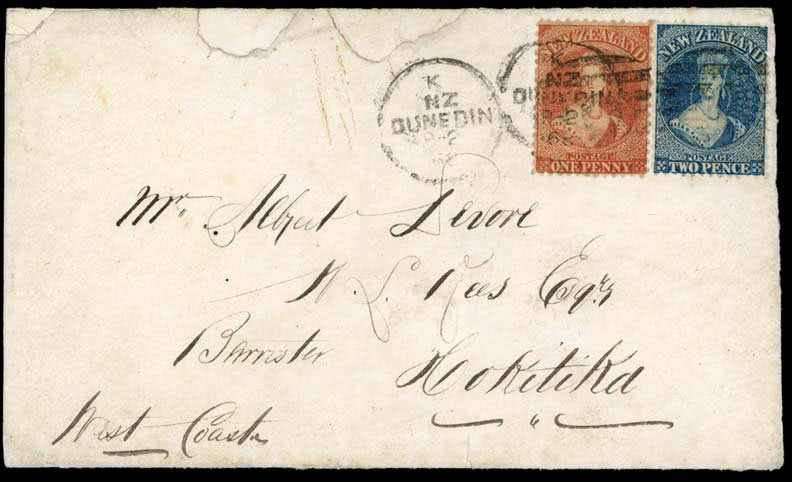 K
NZ
DUNEDIN
AP-2
K
NZ
DUNEDIN
AP-2
NEW ZEALAND
POSTAGE
ONE PENNY
NEW ZEALAND
POSTAGE
TWO PENCE
Mr. Albert Devore
W. L. Rees Eqre
Barrister
Hokitika
West Coast